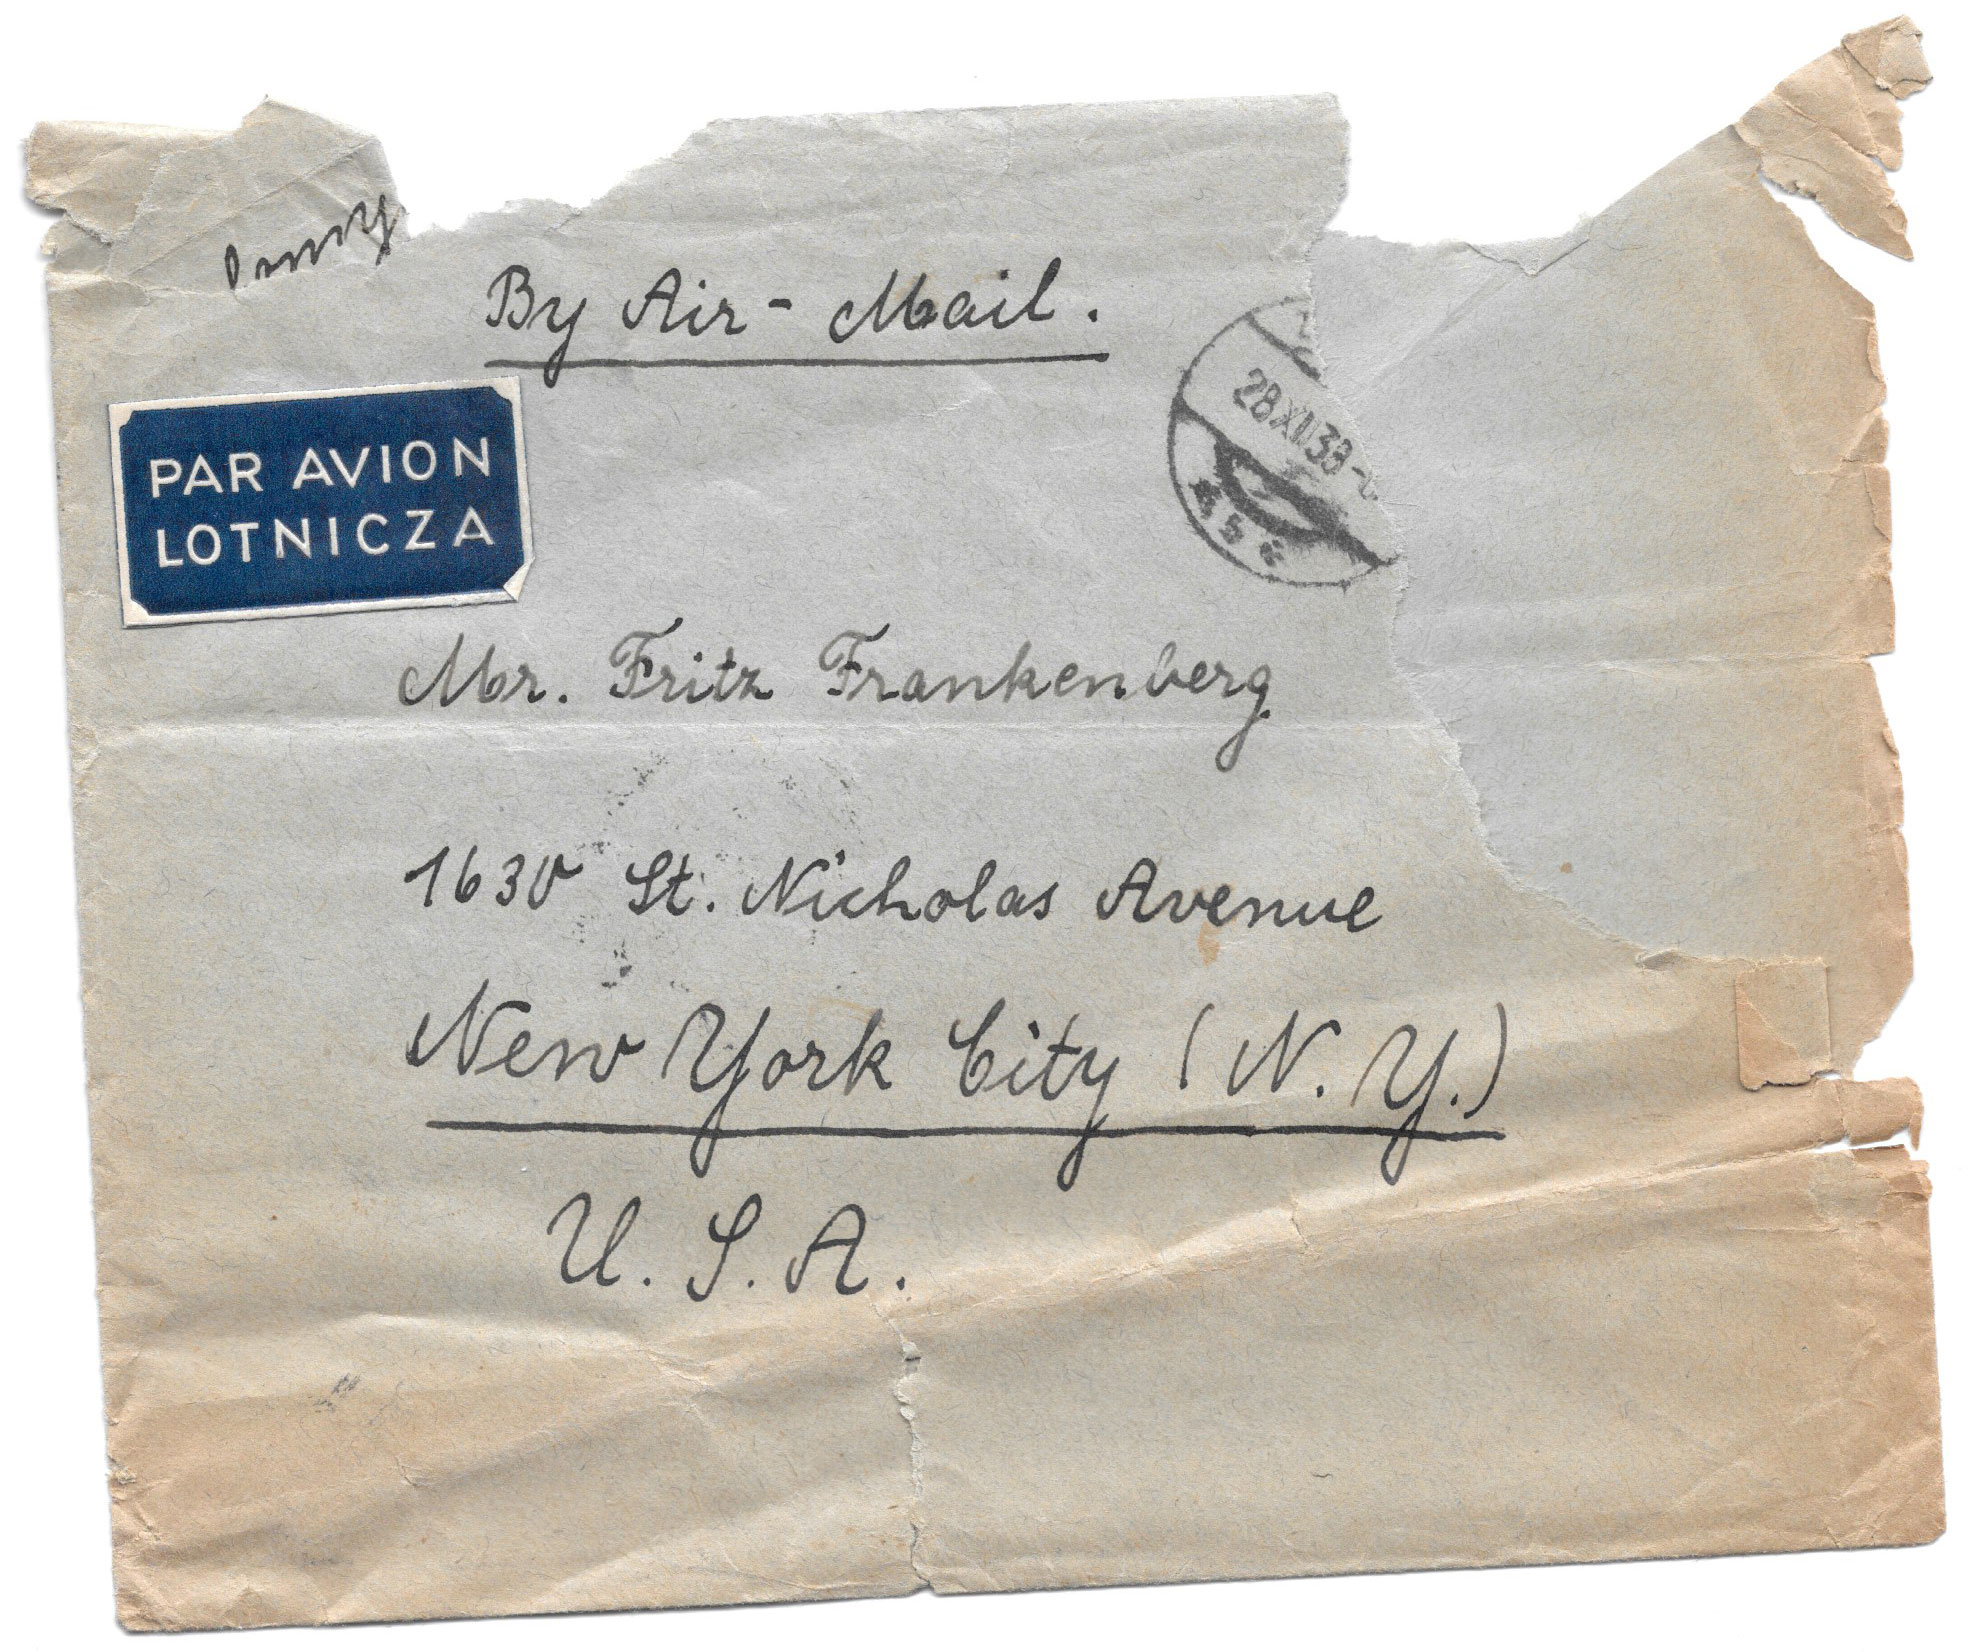 By Air - Mail.
PAR AVION
LOTNICZA
28 XII 38 -
Mr. Fritz Frankenberg
1630 St. Nicholas Avenue
New York City (N. Y.)
U. S. A.